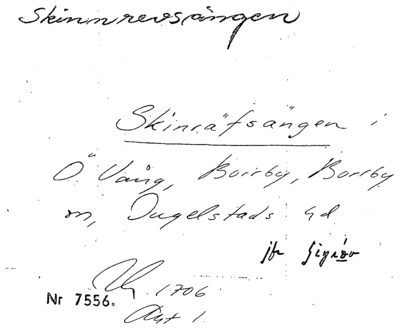 Skinnrevsängen
Skinräfsängen i
Ö Vång, Borrby, Borrby
m, Ingelstads hd
jfr
1706
Nr 7556.
Akt 1.